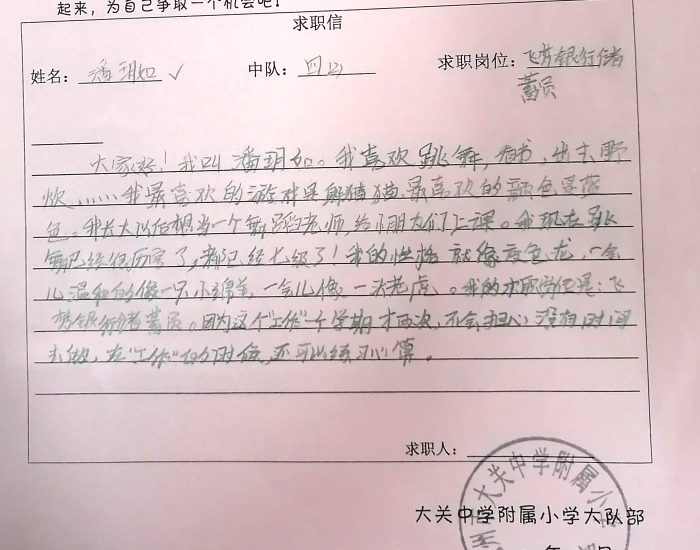 起来，为自己争取一个机会吧！
求职信
姓名：潘玥如 中队：四(2) 求职岗位：飞梦银行储
蓄员
大家好！我叫潘玥如。我喜欢跳舞，看书，出去野
炊……我最喜欢的游戏是解猜猫，最喜欢的颜色是蓝
色。我长大以后想当一个舞蹈老师，给小朋友们上课。我现在跳
舞已经很厉害了，都已经七级了！我的性格就像变色龙，一会
儿温和的像一只小绵羊，一会儿像一头老虎。我的求职岗位是：飞
梦银行储蓄员。因为这个“工作”一个学期才两次，不会担心没有时间
去做，在“工作”的时候，还可以练习心算。
求职人：
大关中学附属小
大关中学附属小学大队部
年